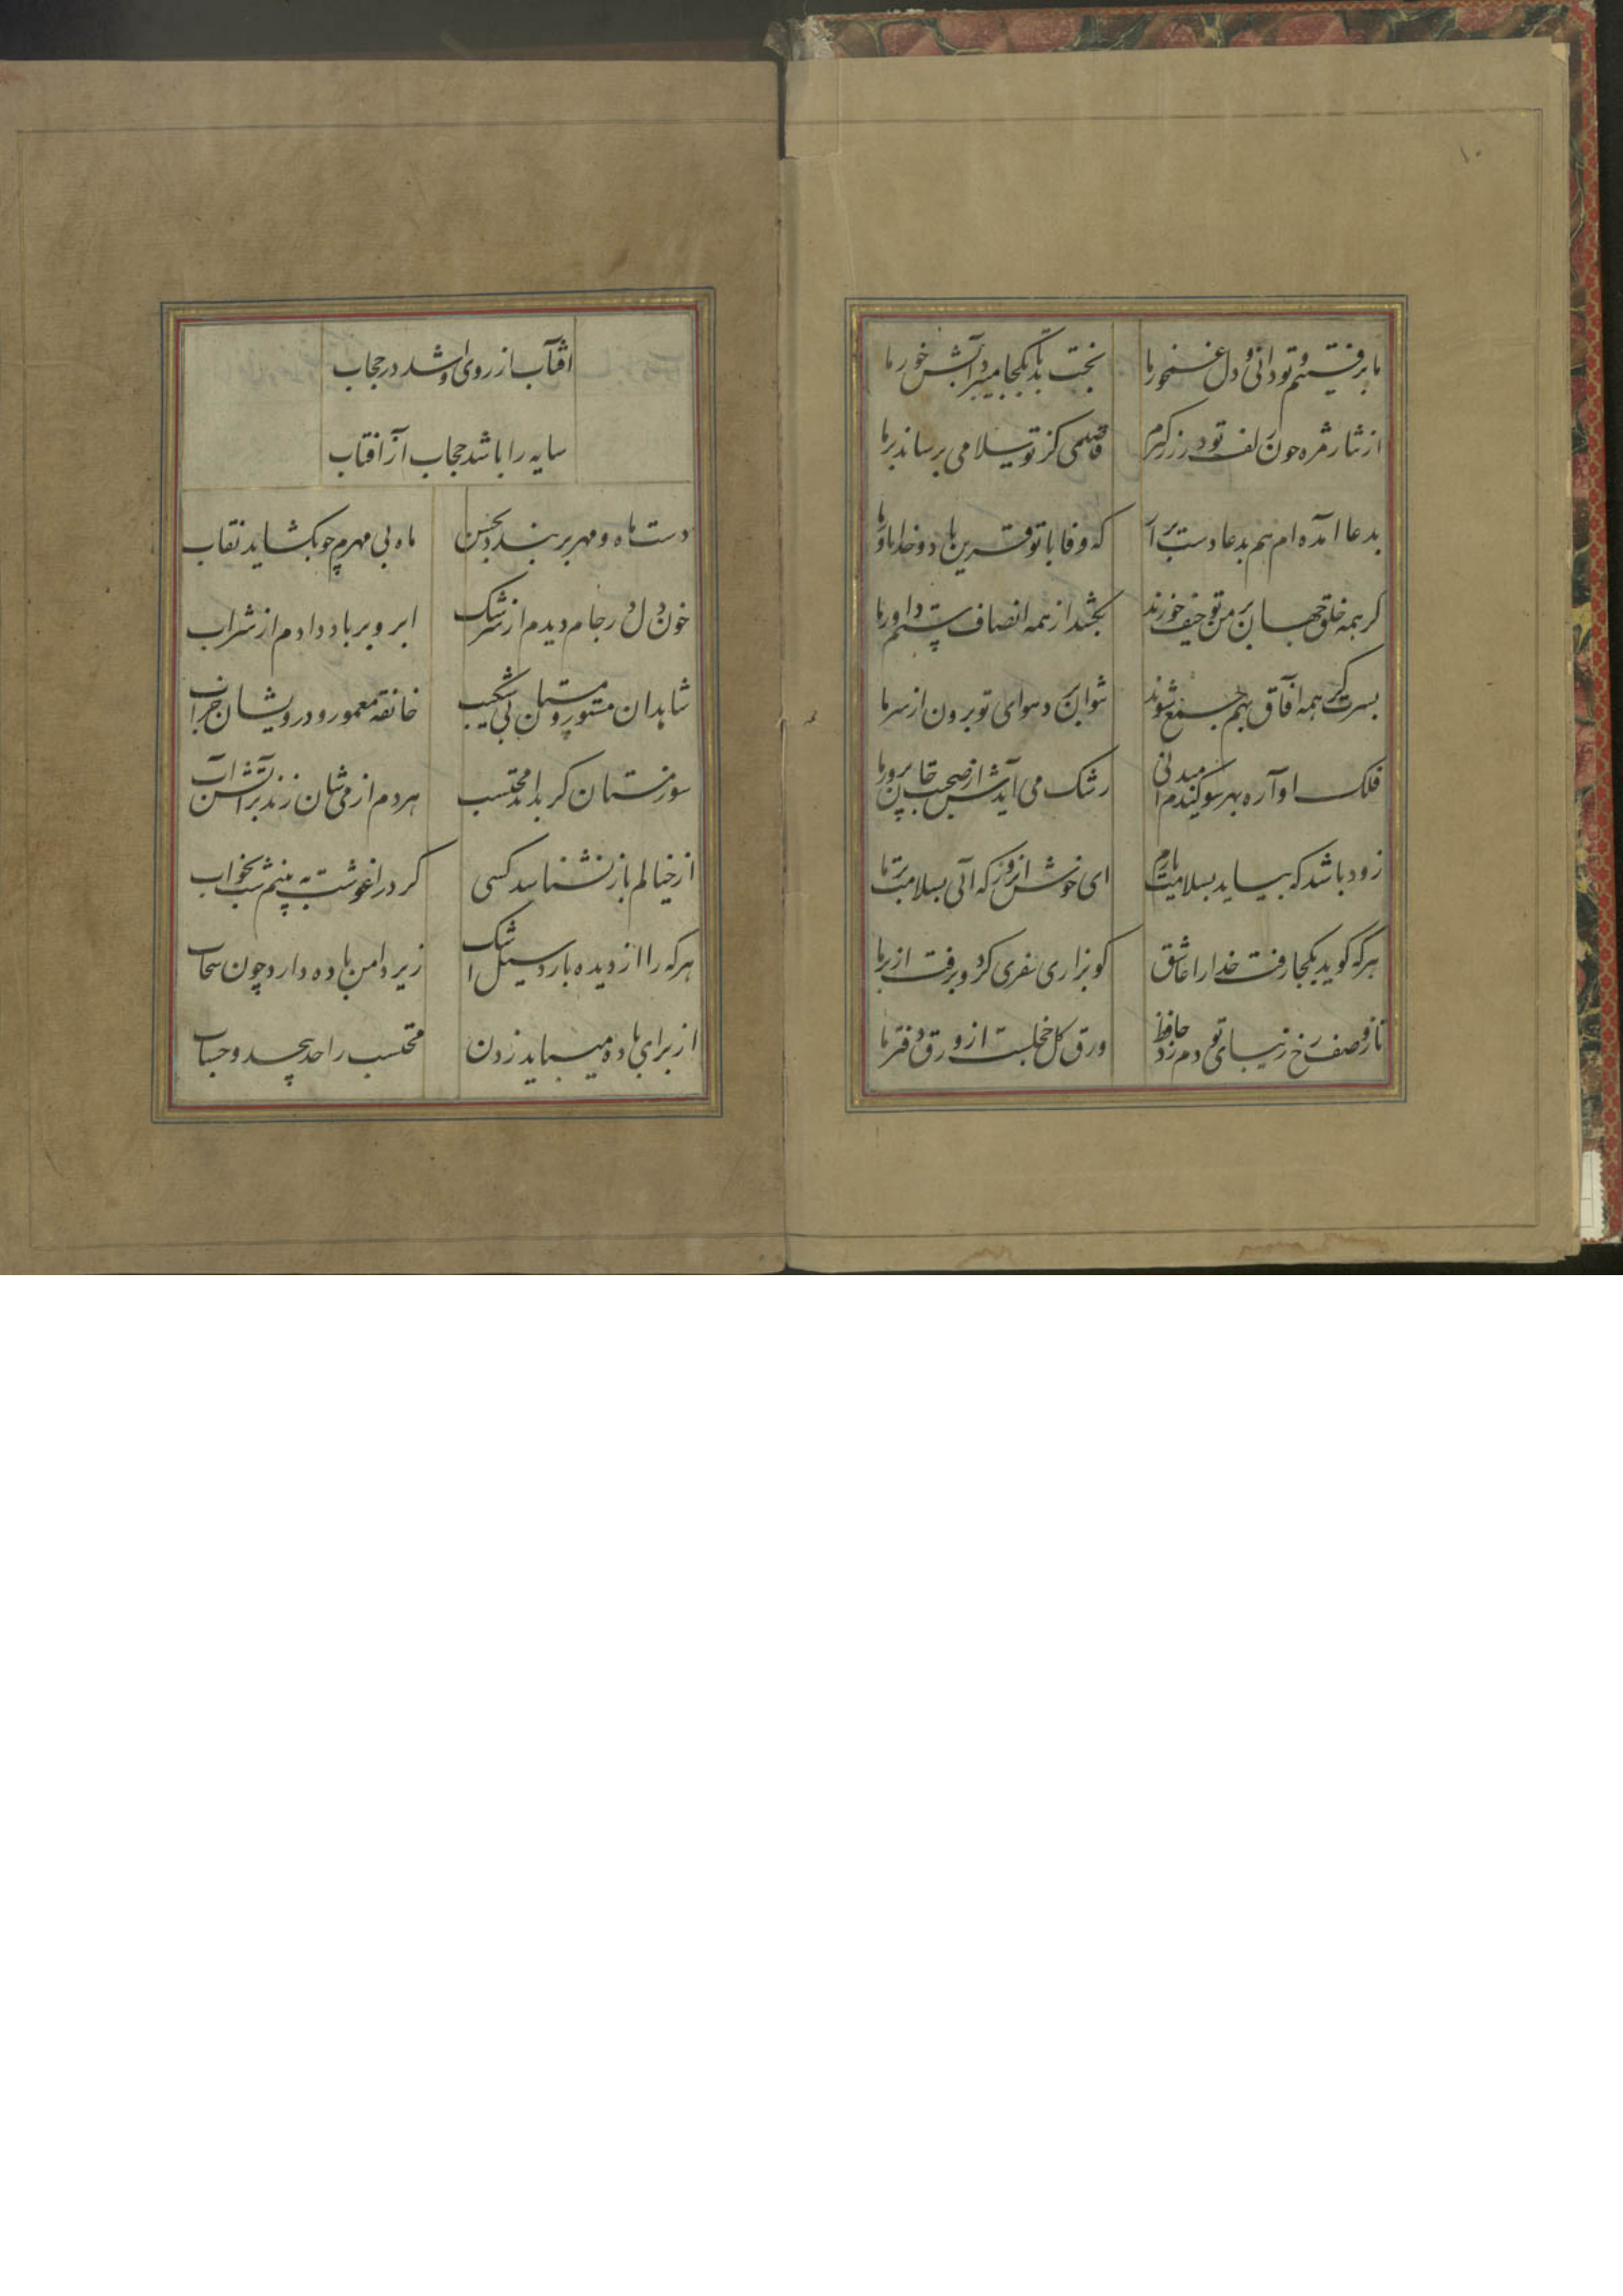 ۱۰
ما برفتیم و تو دانی و دل غمخور ما
بخت بد تا بکجا میبرد آبش خور ما
از نثار مژه چون زلف تو در زر گیرم
قاصدی کز تو سلامی برساند بر ما
بدعا آمده ام هم بدعا دست بر آ
که وفا با تو قرین باد و خدا یاور ما
گر همه خلق جهان بر من و تو حیف خورند
بکشد از همه انصاف ستم داور ما
بسرت گر همه آفاق بهم جمع شوند
نتوان برد هوای تو برون از سر ما
فلک اواره بهر سو کندم میدانی
رشک می آیدش از صحبت جان پرور ما
زود باشد که بیاید بسلامت یارم
ای خوش انروز که آئی بسلامت بر ما
هر که گوید بکجا رفت خدا را عاشق
گو بزاری سفری کرد و برفت از بر ما
تا ز وصف رخ زیبای تو دم زد حافظ
ورق گل خجلست از ورق دفتر ما
افتاب از روی او شد در حجاب
سایه را باشد حجاب از آفتاب
دست ماه و مهر بر بندد بحسن
ماه بی مهرم چو بکشاید نقاب
خون دل در جام دیدم از سرشک
ابرو بر باد دادم از شراب
شاهدان مستور و مستان بی شکیب
خانقه معمور و درویشان خراب
سوز مستان گر بداند محتسب
هر دم از می شان زند بر آتش آب
از خیالم باز نشناسد کسی
گر در اغوشت به بینم شب بخواب
هر که را از دیده بارد سیل اشک
زیر دامن باده دارد چون سحاب
از برای باده میباید زدن
محتسب را حد بیحد و حساب